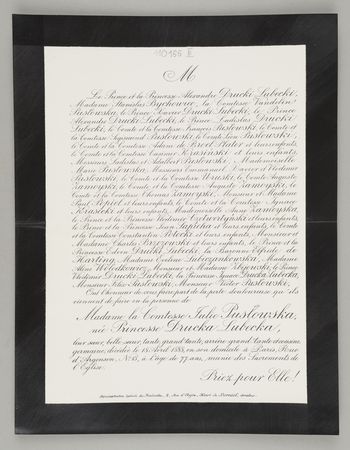 M
Le Prince et la Princesse Alexandre Drucki Lubecki,
Madame Stanislas Bychowiec, la Comtesse Vandelin
Pusłowska, le Prince Xavier Drucki Lubecki, le Prince
Alexandre Drucki Lubecki, le Prince Ladislas Drucki
Lubecki, le Comte et la Comtesse François Pusłowski, le Comte et
la Comtesse Sigismond Pusłowski, le Comte Léon Pusłowski,
le Comte et la Comtesse Adam de Broel Plater et leurs enfants,
le Comte et la Comtesse Casimir Krasinski et leurs enfants,
Messieurs Ladislas et Adalbert Pusłowski, Mademoiselle
Marie Pusłowska, Messieurs Emmanuel, Xavier et
Pusłowski, le Comte et la Comtesse Uruski, le Comte Auguste
Zamoyski, le Comte et la Comtesse Auguste Zamoyski, le
Comte et la Comtesse Thomas Zamoyski, Monsieur et Madame
Paul Popiel et leurs enfants, le Comte et la Comtesse Ignace
Krasicki et leurs enfants, Mademoiselle Anne Zamoyska,
le Prince et la Princesse Wladimir Czetwertyński et leurs enfants,
le Prince et la Princesse Jean Sapieha et leurs enfants, le Comte
et la Comtesse Constantin Potocki et leurs enfants, Monsieur et
Madame Charles Brzozowski et leurs enfants, le Prince et la
Princesse Edwin Drucki Lubecki, la Baronne de
Harting, Madame Eveline Lubiezankowska, Madame
Aline Wołodkowicz, Monsieur et Madame, le Prince
Wladimir Drucki Lubecki, la Princesse Ignace Drucka Lubecka,
Monsieur Félix Pusłowski, Monsieur Victor Pusłowski,
Ont l'honneur de vous faire part de la perte douloureuse qu'ils
viennent de faire en la personne de
Madame la Comtesse Julie Pusłowska,
née Princesse Drucka Lubecka,
leur sœur, belle-sœur, tante, grand'tante, arrière-grand'tante et cousine
germaine, décédée le 18 Avril 1888, en son domicile à Paris, Rue
d'Argenson, N° 15, à l'âge de 77 ans, munie des Sacrements de
l'Église.
Priez pour Elle!